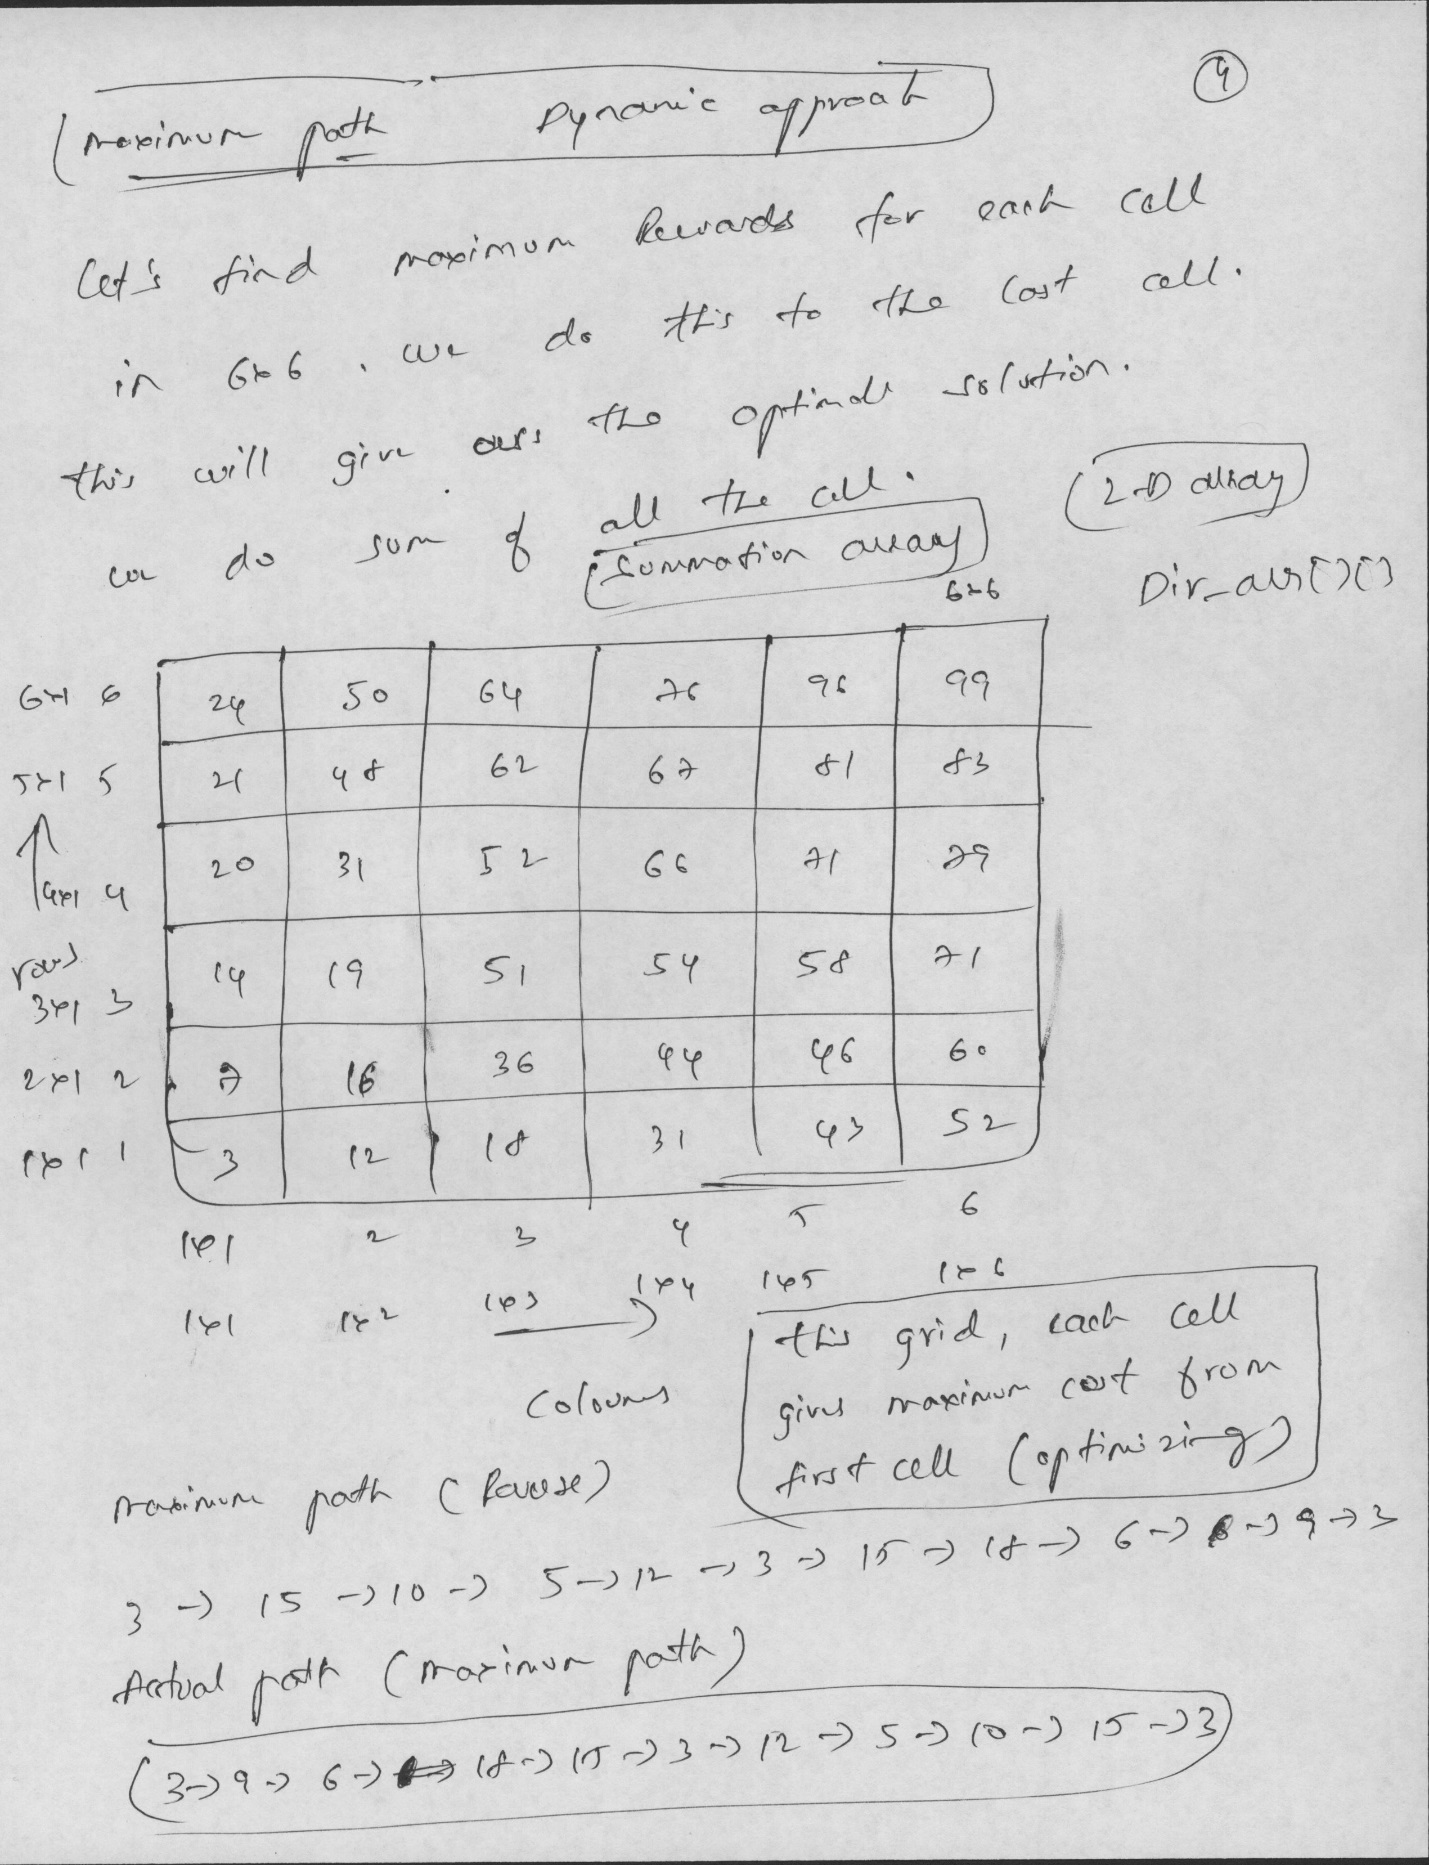 4
Maximum path Dynamic approach
Let's find maximum Rewards for each cell
in 6x6 , we do this to the last cell.
this will give ours the optimal solution.
we do sum of all the cell.
Summation array
6x6
2-D array
Dir_arr[][]
6x1 6 24 50 64 76 96 99
5x1 5 21 48 62 67 81 83
4x1 4 20 31 52 66 71 79
rows
3x1 3 14 19 51 54 58 71
2x1 2 7 16 36 44 46 60
1x1 1 3 12 18 31 43 52
1x1 2 3 4 5 6
1x1 1x2 1x3 1x4 1x5 1x6
Coloums
this grid, each cell
gives maximum cost from
first cell (optimizing)
Maximum path (Reverse)
3 → 15 → 10 → 5 → 12 → 3 → 15 → 18 → 6 → → 9 → 3
Actual path (Maximum path)
3 → 9 → 6 → 18 → 15 → 3 → 12 → 5 → 10 → 15 → 3